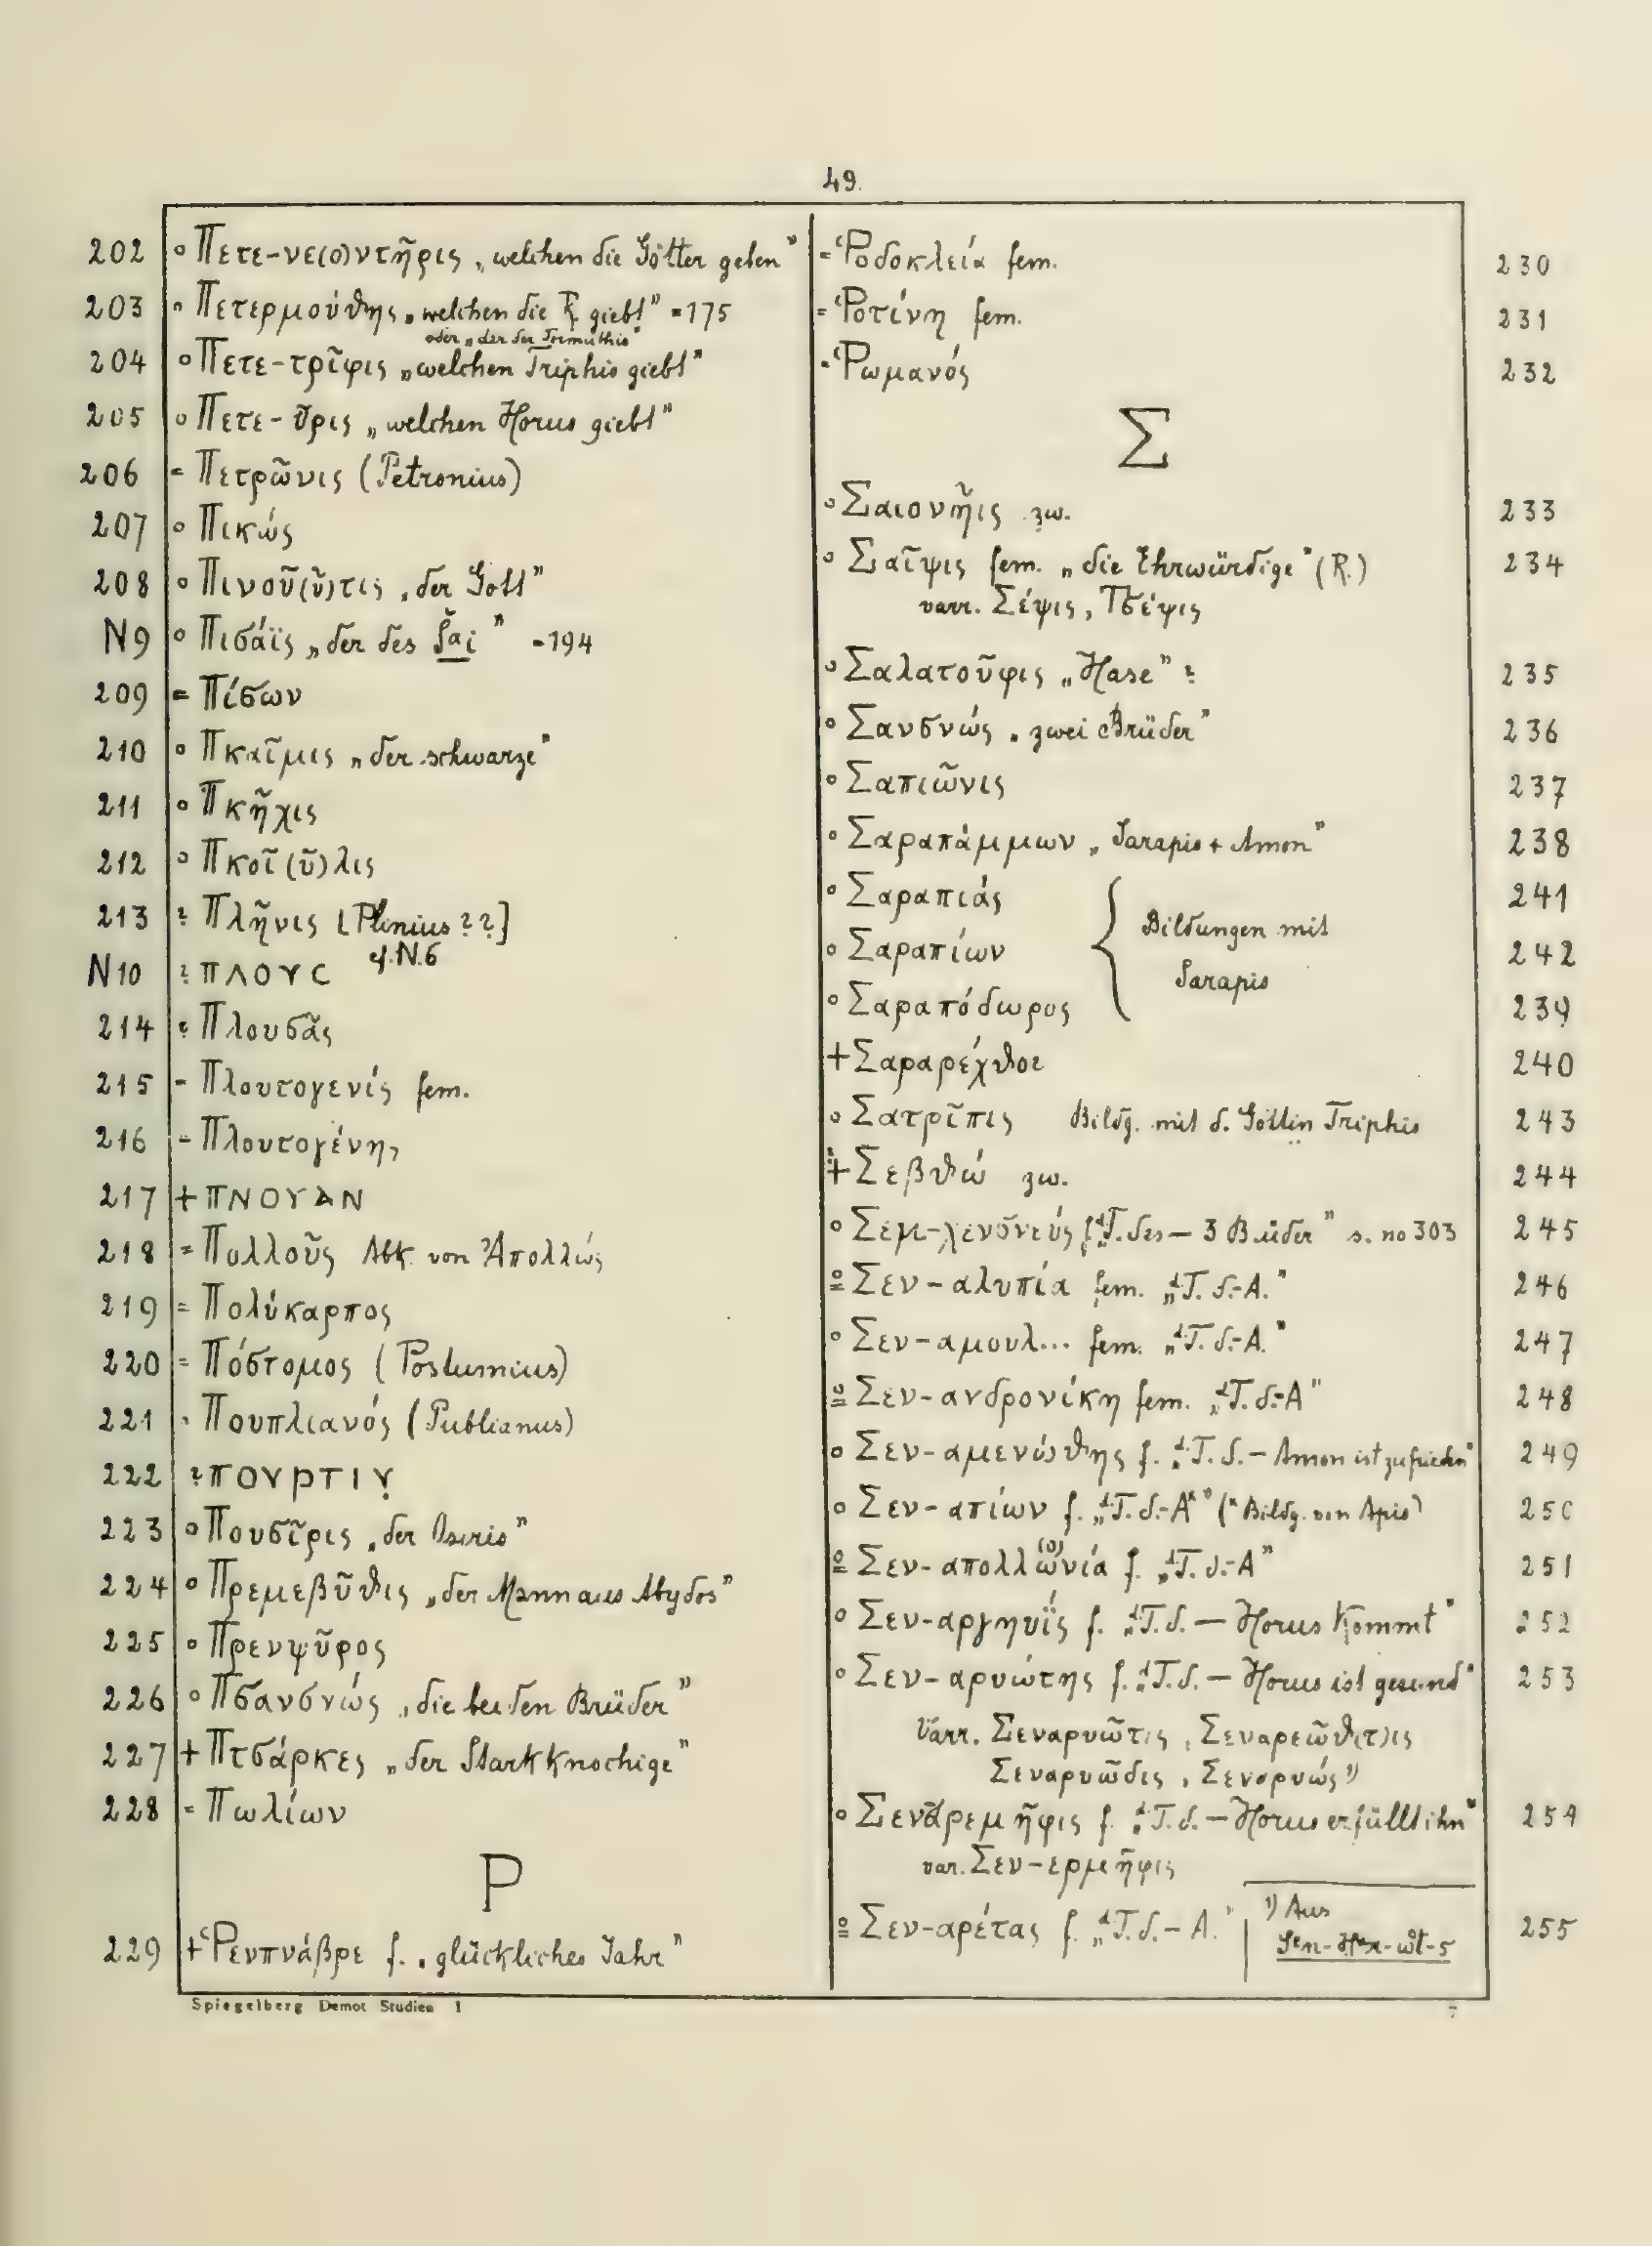 49.
202 ° Πετε-νε(ο)ντῆρις „welchen die Götter geben"
203 ° Πετερμούθης „welchen die R. giebt" = 175
oder „der der Termuthis"
204 ° Πετε-τρῖφις „welchen Triphis giebt"
205 ° Πετε-ῦρις „welchen Horus giebt"
206 = Πετρῶνις (Petronius)
207 ° Πικώς
208 ° Πινοῦ(ῦ)τις „der Gott"
N9 ° Πισάϊς „der des Šai" = 194
209 = Πίσων
210 ° Πκαῖμις „der schwarze"
211 ° Πκῆχις
212 ° Πκοῖ(ῦ)λις
213 ? Πλῆνις [Plinius??]
cf. N.6
N10 ? ΠΛΟΥC
214 ? Πλουσᾶς
215 = Πλουτογενίς fem.
216 = Πλουτογένης
217 + ΠΝΟΥΑΝ
218 = Πολλοῦς Abk. von Ἀπολλώς
219 = Πολύκαρπος
220 = Πόστομος (Postumius)
221 = Πουπλιανός (Publianus)
222 ? ΠΟΥΡΤΙΥ
223 ° Πουσῖρις „der Osiris"
224 ° Πρεμεβῦθις „der Mann aus Abydos"
225 ° Πρενψῦρος
226 ° Πσανσνώς „die beiden Brüder"
227 + Πτσάρκες „der Starkknochige"
228 = Πωλίων
Ρ
229 + Ῥενπνάβρε f. „glückliches Jahr"
= Ῥοδοκλεία fem. 230
= Ῥοτίνη fem. 231
= Ῥωμανός 232
Σ
° Σαιονῆις zw. 233
° Σαῖψις fem. „die Ehrwürdige" (R.) 234
varr. Σέψις, Τσέψις
° Σαλατοῦφις „Hase" ? 235
° Σανσνώς „zwei Brüder" 236
° Σαπιῶνις 237
° Σαραπάμμων „Sarapis + Amon" 238
° Σαραπιάς 241
° Σαραπίων 242
° Σαραπόδωρος 239
Bildungen mit
Sarapis
+ Σαραρέχθοι 240
° Σατρῖπις Bildg. mit d. Göttin Triphis 243
+ Σεβθώ zw. 244
° Σεμ-χενσνεύς f. „d. T. des – 3 Brüder" s. no 303 245
° Σεν-αλυπία fem. „d. T. d.-A." 246
° Σεν-αμουλ... fem. „d. T. d.-A." 247
° Σεν-ανδρονίκη fem. „d. T. d.-A" 248
° Σεν-αμενώθης f. „d. T. d. – Amon ist zufrieden" 249
° Σεν-απίων f. „d. T. d.-A*" (* Bildg. von Apis) 250
° Σεν-απολλώ(ο)νία f. „d. T. d.-A" 251
° Σεν-αργηυΐς f. „d. T. d. – Horus kommt" 252
° Σεν-αρυώτης f. „d. T. d. – Horus ist gesund" 253
Varr. Σεναρυῶτις, Σεναρεῶθ(τ)ις
Σεναρυῶδις, Σεναρυώς ¹)
° Σεναρεμῆφις f. „d. T. d. – Horus erfüllt ihn" 254
var. Σεν-ερμῆφις
° Σεν-αρέτας f. „d. T. d. – A." 255
¹) Aus
Spiegelberg Demot Studien 1
7